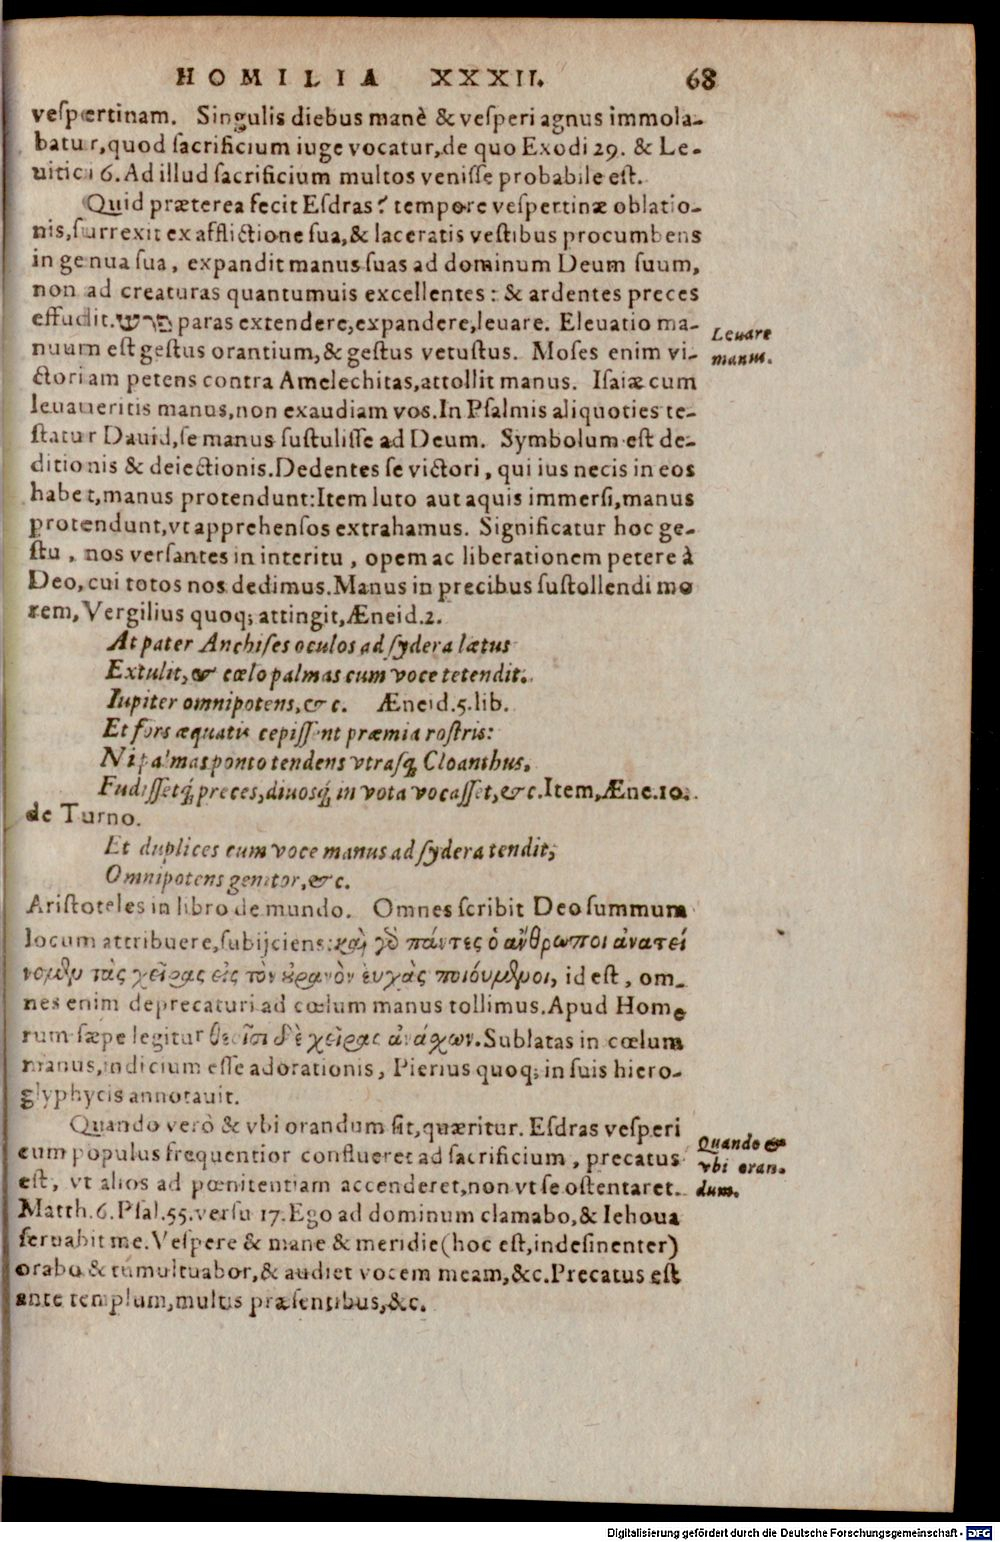 HOMILIA XXXII. 68
veſpertinam. Singulis diebus manè & veſperi agnus immola-
batur, quod ſacrificium iuge vocatur, de quo Exodi 29. & Le-
uitici 6. Ad illud ſacrificium multos veniſſe probabile eſt.
Quid præterea fecit Eſdras? tempore veſpertinæ oblatio-
nis, ſurrexit ex afflictione ſua, & laceratis veſtibus procumbens
in genua ſua, expandit manus ſuas ad dominum Deum ſuum,
non ad creaturas quantumuis excellentes: & ardentes preces
effudit. פרש paras extendere, expandere, leuare. Eleuatio ma-
Leuare
nuum eſt geſtus orantium, & geſtus vetuſtus. Moſes enim vi-
manus.
ctoriam petens contra Amelechitas, attollit manus. Iſaiæ cum
leuaueritis manus, non exaudiam vos. In Pſalmis aliquoties te-
ſtatur Dauid, ſe manus ſuſtuliſſe ad Deum. Symbolum eſt de-
ditionis & deiectionis. Dedentes ſe victori, qui ius necis in eos
habet, manus protendunt: Item luto aut aquis immerſi, manus
protendunt, vt apprehenſos extrahamus. Significatur hoc ge-
ſtu, nos verſantes in interitu, opem ac liberationem petere à
Deo, cui totos nos dedimus. Manus in precibus ſuſtollendi mo
rem, Vergilius quoq; attingit, Æneid. 2.
At pater Anchiſes oculos ad ſydera lætus
Extulit, & cœlo palmas cum voce tetendit.
Iupiter omnipotens, &c. Æneid. 5. lib.
Et fors æquatis cepiſſent præmia roſtris:
Ni palmas ponto tendens vtraſq; Cloanthus,
Fudiſſetq́; preces, diuosq́; in vota vocaſſet, &c. Item, Æne. 10.
de Turno.
Et duplices cum voce manus ad ſydera tendit;
Omnipotens genitor, &c.
Ariſtoteles in libro de mundo. Omnes ſcribit Deo ſummum
locum attribuere, ſubijciens: καὶ γὸ πάντες ὁ ἄνθρωποι ἀνατεί
νομϑμ τὰς χεῖρας εἰς τὸν ȣ̓ρανὸν ἐυχὰς ποιόυμϑμοι, id eſt, om-
nes enim deprecaturi ad cœlum manus tollimus. Apud Home
rum ſæpe legitur θεοῖσι δὲ χεῖρας ἀνάχων. Sublatas in cœlum
manus, indicium eſſe adorationis, Pierius quoq; in ſuis hiero-
glyphycis annotauit.
Quando verò & vbi orandum ſit, quæritur. Eſdras veſperi
Quando &
cum populus frequentior conflueret ad ſacrificium, precatus
vbi oran-
eſt, vt alios ad pœnitentiam accenderet, non vt ſe oſtentaret.
dum.
Matth. 6. Pſal. 55. verſu 17. Ego ad dominum clamabo, & Iehoua
ſeruabit me. Veſpere & mane & meridie (hoc eſt, indeſinenter)
orabo & tumultuabor, & audiet vocem meam, &c. Precatus eſt
ante templum, multis præſentibus, &c.
Digitalisierung gefördert durch die Deutsche Forschungsgemeinschaft - DFG